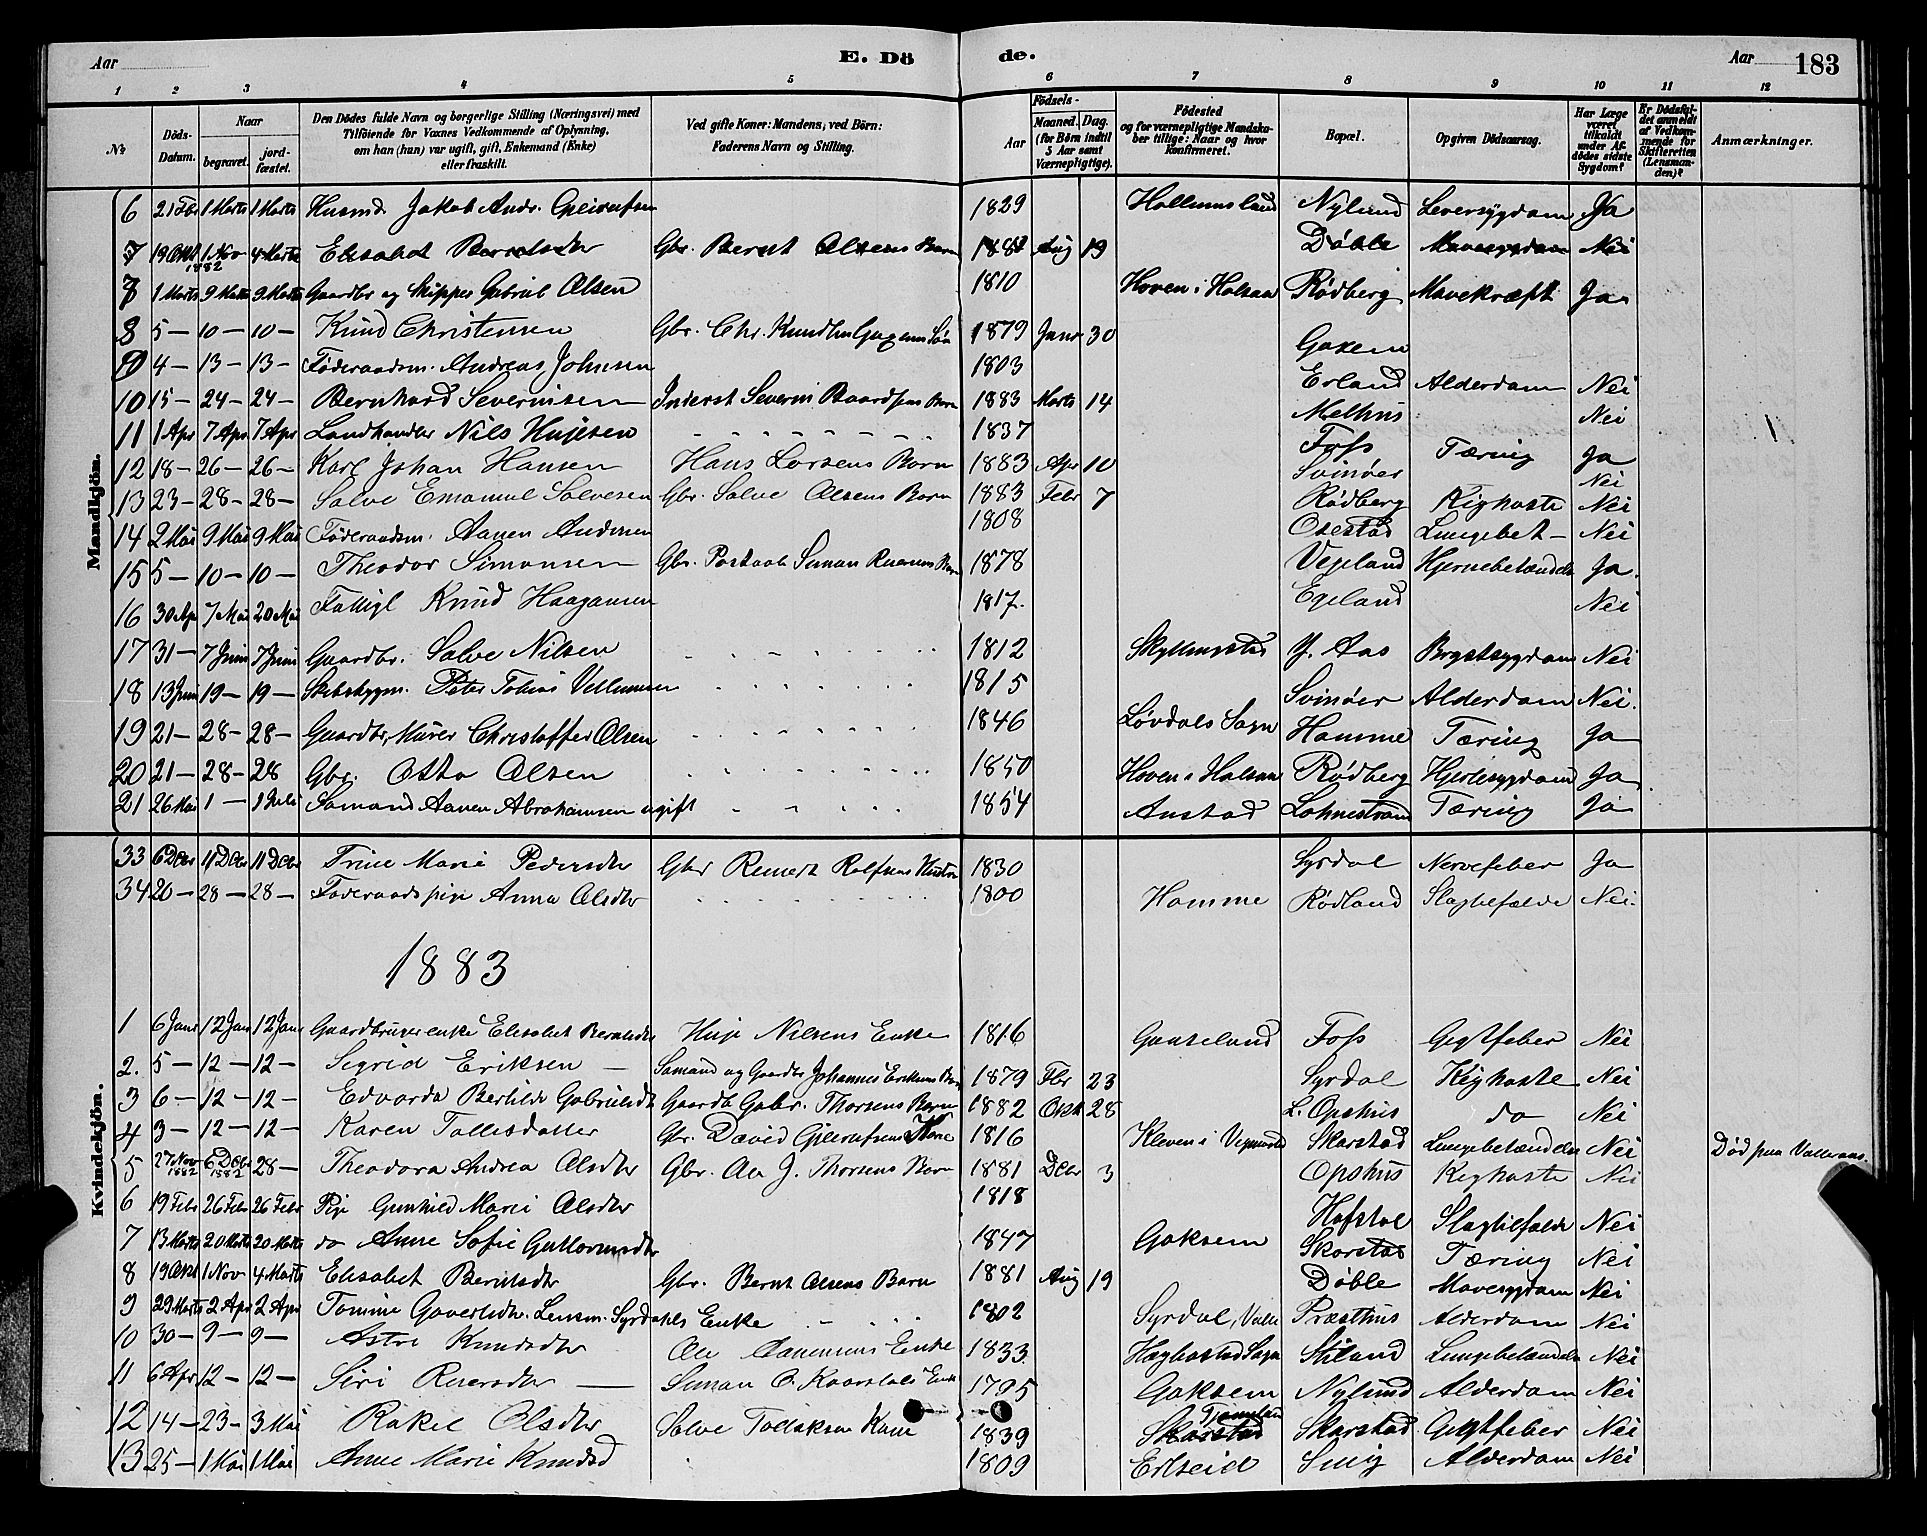 Aar E. Dö de. Aar 183
1 2 3 4 5 6 7 8 9 10 11 12
№ Döds-Datum. Naar begravet. jord-fæstet. Den Dödes fulde Navn og borgerlige Stilling (Næringsvei) med Tilföiende for Voxnes Vedkommende af Oplysning, om han (hun) var ugift, gift, Enkemand (Enke) eller fraskilt. Ved gifte Koner: Mandens; ved Börn: Faderens Navn og Stilling. Födsels- Aar Maaned. Dag. (for Börn indtil 5 Aar samt Værnepligtige). Födested og for værnepligtige Mandska-ber tillige: Naar og hvor Konfirmeret. Bopæl. Opgiven Dödsaarsag. Har Læge været tilkaldt under Af-dödes sidste Sygdom? Er Dödsfal-det anmeldt af Vedkom-mende for Skifteretten (Lensman-den)? Anmærkninger.
Mandkjön.
6 21 Fbr 1 Marts 1 Marts Husmd Jakob Andr. 1829 Nylund Leversygdom Ja
7 19 Okt 1 Nov 1882 4 Marts Elisabet Berntsdtr Gbr. Bernt Olsens Barn 1881 Aug 19 Døble Mavesygdom Nei
7 1 Marts 9 Marts 9 Marts Gaardbr og Skipper Gabriel Olsen 1810 Hoven i Halsaa Rødberg Mavekræft Ja
8 5 – 10 – 10 – Knud Christensen Gbr. Chr. 1879 Janr 30 Gaxem
9 4 – 13 – 13 – Føderaadsm. Andreas Johnsen 1803 Erland Alderdom Nei
10 15 – 24 – 24 – Bernhard Severinsen Inderst Severin Baardsens Barn 1883 Marts 14 Melhus Nei
11 1 Apr 7 Apr 7 Apr Landhandler Nils Hujesen 1837 Foss Tæring Ja
12 18 – 26 – 26 – Karl Johan Hansen Hans Larsens Barn 1883 Apr 10 Svinøer Nei
13 23 – 28 – 28 – Salve Emanuel Salvesen Gbr. Salve Olsens Barn 1883 Febr 7 Rødberg Kighoste Nei
14 2 Mai 9 Mai 9 Mai Føderaadsm. Aanen Andersen 1808 Osestad Lungebet – Nei
15 5 – 10 – 10 – Theodor Simonsen Gbr. 1878 Vegeland Hjernebetændels Ja.
16 30 Apr 7 Mai 20 Mai Fattigl Knud Haagansen 1817. Egeland Nei
17 31 – 7 Juni 7 Juni Gaardbr. Salve Nilsen 1812 Y. Aas Brystsygdom Nei
18 13 Juni 19 – 19 – Skibsbygm. Peter Tobias Vellumsen 1815 Svinøer Alderdom Nei.
19 21 – 28 – 28 – Gaardbr, Murer Christoffer Olsen 1846 Løvdals Sogn Homme Tæring Ja
20 21 – 28 – 28 Gbr. Otto Olsen 1850 Hoven i Halsaa Rødberg Hjertesygdom Ja
21 26 Mai 1 – 1 Juli Sømand Aanen Abrahamsen ugift 1854 Anstad Lohnestrand Tæring Ja
33 6 Dcbr 11 Dcbr 11 Dcbr Trine Marie Pedersdtr Gbr Reinert Rolfsens Hustru 1830 Syrdal Nervefeber Ja
34 20 – 28 – 28 – Føderaadspige Anna Olsdtr 1800 Homme Rødland Slagtilfælde Nei.
1883
Kvindekjön.
1 6 Janr 12 Jan 12 Jan Gaardbrugerenke Elisabet Berntsdtr Huje Nilsens Enke 1816 Gaaseland Foss Gigtfeber Nei
2. 5 – 12 – 12 – Sigrid Eriksen – Sømand og Gaardbr Johannes Eriksens Barn 1879 Fbr 23 Syrdal Kighoste Nei
3 6 – 12 – 12 – Edvarda Bertilde Gabrielsdt Gaardb Gabr. Thorsens Barn 1882 Okt 28 L. Opshus do Nei
4 3 – 12 – 12 – Karen Tollisdatter Gbr. David Kone 1816 Kleven i Skarstad Lungebetændels Nei
5 27 Nov 1882 6 Dcbr 1882 28 – Theodora Andrea Olsdtr Gbr. Ole J. Thorsens Barn 1881 Dcbr 3 Opshus Kighoste Nei Død paa
6 19 Febr 26 Febr 26 Febr Pige Gunhild Marie Olsdtr 1818 Hofstol Slagtilfælde Nei
7 13 Marts 20 Marts 20 Marts do Anne Sofie Guttormsdtr 1847 Goksem Skarstad Tæring Nei
8 19 Okt 1 Nov 4 Marts Elisabet Berntsdtr Gbr. Bernt Olsens Barn 1881 Aug 19 Døble Mavesygdom Nei
9 29 Marts 2 Apr 2 Apr Tomine Govertsdtr. Lensm. Syrdahls Enke 1802 Syrdal, Valle Præsthus Alderdom Nei
10 30 – 9 – 9 – Astri Knudsdtr Ole Aanensens Enke 1833 Hægbostad Sogn Stiland Lungebetændels Nei
11 6 Apr 12 – 12 – Siri – Simon O. Kaarstads Enke 1795 Goksem Nylund Alderdom Nei
12 14 – 23 – 3 Mai Rakel Olsdtr Salve Tollaksen Kone 1839 Skarstad Skarstad Gigtfeber Nei
13 25 – 1 Mai 1 Mai Anne Marie Knudsd 1809 Erlseid Snig Alderdom Nei